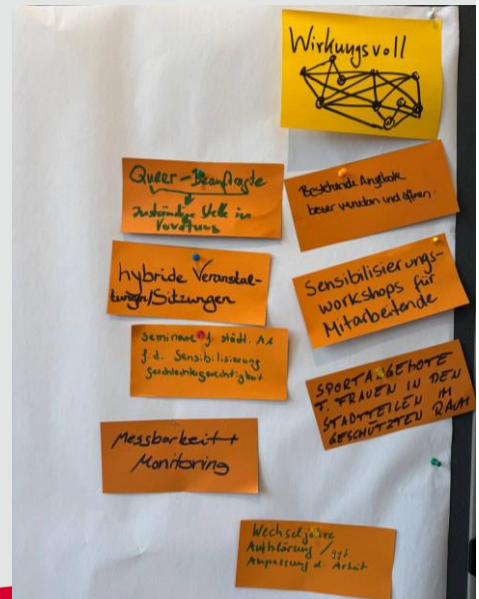 Wirkungsvoll
Queer-Beauftragte
zuständige Stelle in
Verwaltung
Bestehende Angebote
besser vernetzen und öffnen
hybride Veranstal-
tungen/Sitzungen
Sensibilisierungs-
workshops für
Mitarbeitende
Seminare f. städt. MA
f. d. Sensibilisierung
Geschlechtergerechtigkeit
SPORTANGEBOTE
F. FRAUEN IN DEN
STADTTEILEN IM
GESCHÜTZTEN RAUM
Messbarkeit +
Monitoring
Wechseljahre
Aufklärung / ggf.
Anpassung d. Arbeit